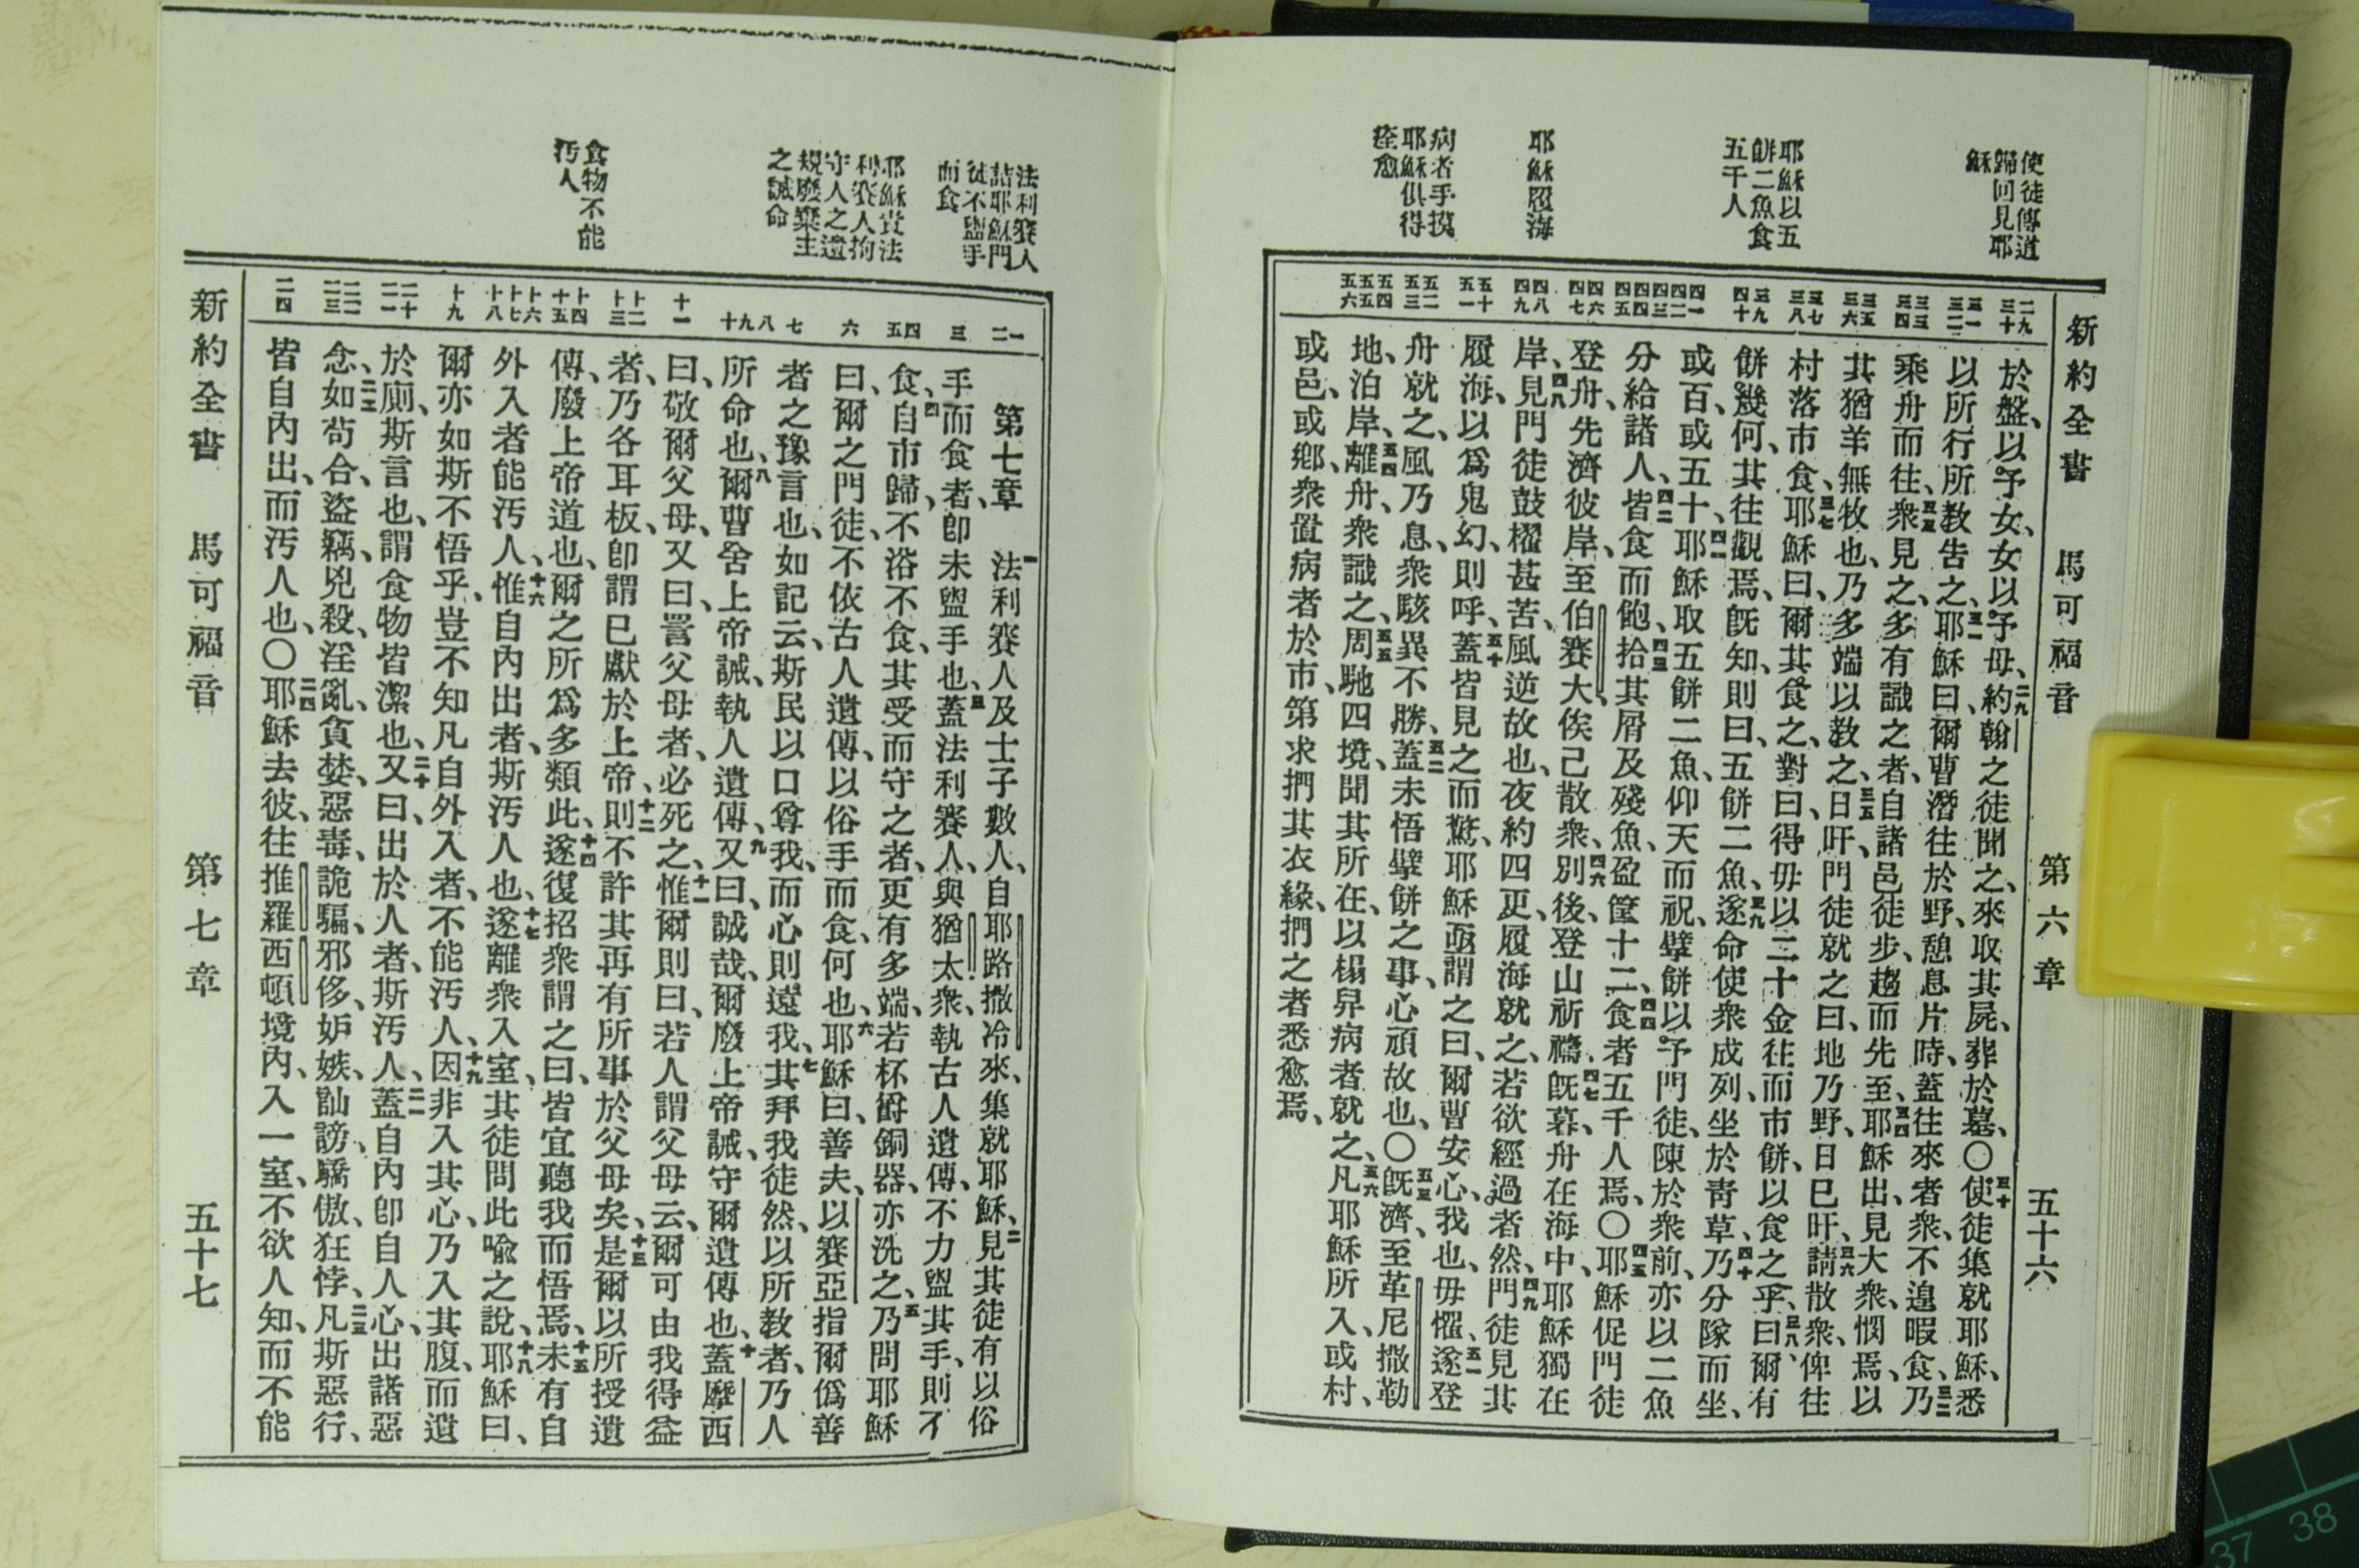 新約全書 馬可福音 第六章 五十六
使徒傳道
歸回見耶
穌
耶穌以五
餅二魚食
五千人
耶穌履海
病者手捫
耶穌俱得
痊愈
二九 三十 三一 三二 三三 三四 三五 三六 三七 三八 三九 四十 四一 四二 四三 四四 四五 四六 四七 四八 四九 五十 五一 五二 五三 五四 五五 五六
於盤、以予女、女以予母、二九約翰之徒聞之、來取其屍、葬於墓、〇三十使徒集就耶穌、悉
以所行所教吿之、三一耶穌曰、爾曹潛往於野、憩息片時、蓋往來者衆、不遑暇食、三二乃
乘舟而往、三三衆見之、多有識之者、自諸邑徒步、趨而先至、三四耶穌出、見大衆、憫焉、以
其猶羊無牧也、乃多端以教之、三五日旰、門徒就之曰、地乃野、日已旰、三六請散衆、俾往
村落市食、三七耶穌曰、爾其食之、對曰、得毋以二十金往而市餅、以食之乎、三八曰、爾有
餅幾何、其往觀焉、旣知、則曰、五餅二魚、三九遂命使衆成列、坐於靑草、四十乃分隊而坐、
或百、或五十、四一耶穌取五餅二魚、仰天而祝、擘餅以予門徒、陳於衆前、亦以二魚
分給諸人、四二皆食而飽、四三拾其屑及殘魚、盈筐十二、四四食者五千人焉、〇四五耶穌促門徒
登舟、先濟彼岸、至伯賽大、俟己散衆、四六別後、登山祈禱、四七旣暮、舟在海中、耶穌獨在
岸、四八見門徒鼓櫂甚苦、風逆故也、夜約四更、履海就之、若欲經過者然、四九門徒見其
履海、以爲鬼幻、則呼、五十蓋皆見之而驚、耶穌亟謂之曰、爾曹安心、我也、毋懼、五一遂登
舟就之、風乃息、衆駭異不勝、五二蓋未悟擘餅之事、心頑故也、〇五三旣濟、至革尼撒勒
地、泊岸、五四離舟、衆識之、五五周馳四境、聞其所在、以榻舁病者就之、五六凡耶穌所入、或村、
或邑、或鄉、衆置病者於市、第求捫其衣緣、捫之者悉愈焉、
法利賽人
詰耶穌門
徒不盥手
而食
耶穌責法
利賽人拘
守人之遺
規廢棄主
之誡命
食物不能
汚人
一 二 三 四 五 六 七 八 九 十 十一 十二 十三 十四 十五 十六 十七 十八 十九 二十 二一 二二 二三 二四
第七章 一法利賽人及士子數人、自耶路撒冷來、集就耶穌、二見其徒有以俗
手而食者、卽未盥手也、三蓋法利賽人、與猶太衆、執古人遺傳、不力盥其手、則不
食、四自市歸、不浴不食、其受而守之者、更有多端、若杯爵銅器、亦洗之、五乃問耶穌
曰、爾之門徒、不依古人遺傳、以俗手而食、何也、六耶穌曰、善夫、以賽亞指爾僞善
者之豫言也、如記云、斯民以口尊我、而心則遠我、七其拜我徒然、以所教者、乃人
所命也、八爾曹舍上帝誡、執人遺傳、九又曰、誠哉、爾廢上帝誡、守爾遺傳也、十蓋摩西
曰、敬爾父母、又曰、詈父母者、必死之、十一惟爾則曰、若人謂父母云、爾可由我得益
者、乃各耳板、卽謂已獻於上帝、十二則不許其再有所事於父母矣、十三是爾以所授遺
傳、廢上帝道也、爾之所爲多類此、十四遂復招衆謂之曰、皆宜聽我而悟焉、十五未有自
外入者能汚人、十六惟自內出者、斯汚人也、十七遂離衆入室、其徒問此喩之說、十八耶穌曰、
爾亦如斯不悟乎、豈不知凡自外入者、不能汚人、十九因非入其心、乃入其腹、而遺
於廁、斯言也、謂食物皆潔也、二十又曰、出於人者、斯汚人、二一蓋自內卽自人心、出諸惡
念、二二如苟合、盜竊、兇殺、淫亂、貪婪、惡毒、詭騙、邪侈、妒嫉、訕謗、驕傲、狂悖、二三凡斯惡行、
皆自內出、而汚人也、〇二四耶穌去彼、往推羅西頓境內、入一室、不欲人知、而不能
新約全書 馬可福音 第七章 五十七
37 38